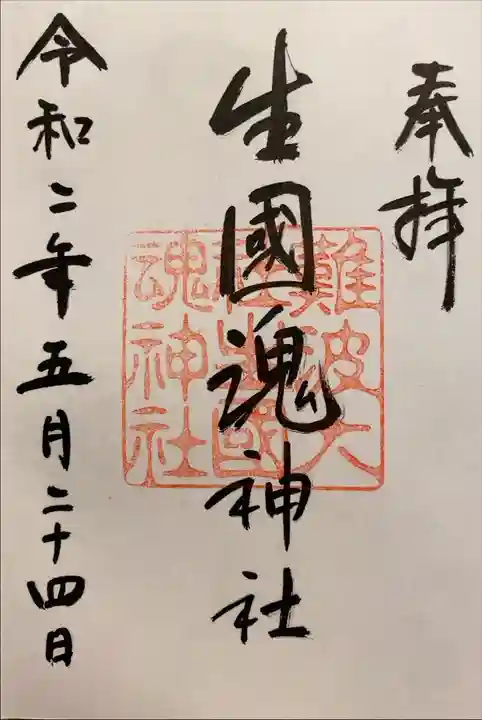 奉拝
生國魂神社
難波大
社生國
魂神社
令和二年五月二十四日